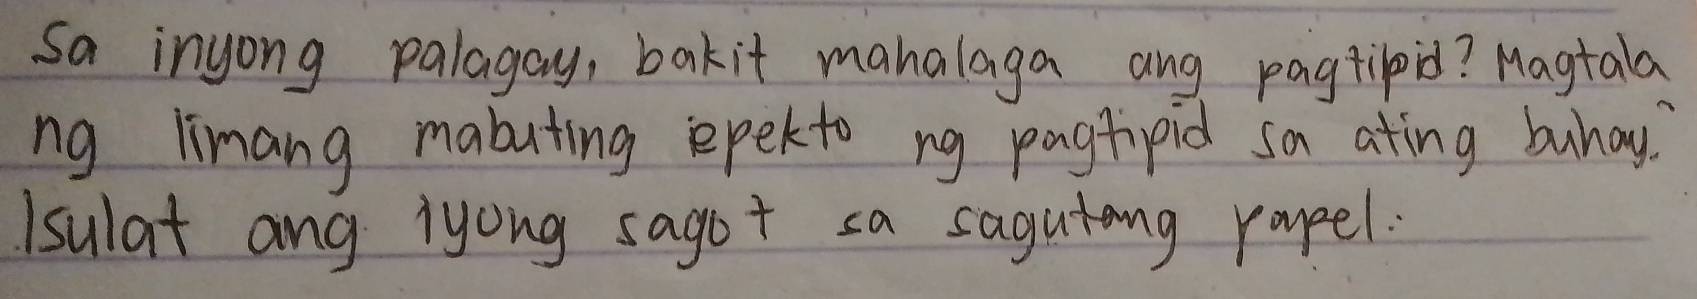 Sa inyong palagay, bakit mahalaga ang pagtipid? Magtala
ng limang mabuting epekto ng pagtipid sa ating buhay.
Isulat ang iyong sagot sa sagutang papel.